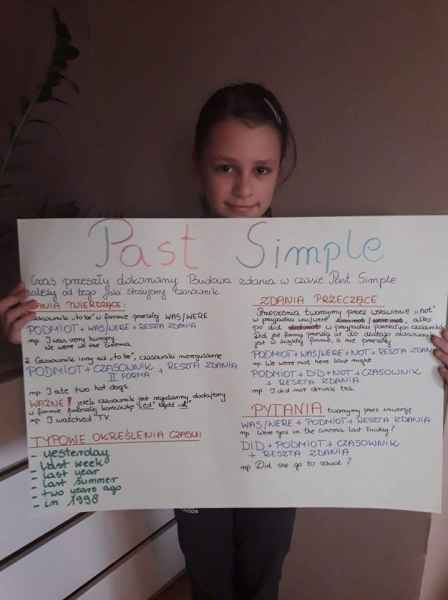 Past Simple
Czas przeszły dokonany. Budowa zdania w czasie Past Simple
zależy od tego jaki stosujemy czasownik
ZDANIA TWIERDZĄCE:
czasownik "to be" w formie przeszłej WAS/WERE
PODMIOT + WAS/WERE + RESZTA ZDANIA
np. I was very hungry
We were at the cinema
2. Czasownik inny niż "to be", czasowniki nieregularne
PODMIOT + CZASOWNIK + RESZTA ZDANIA
II FORMA
np. I ate two hot dogs
WAŻNE! jeśli czasownik jest regularny dodajemy
w formie twierdzącej końcówkę "ed" bądź "d"
np. I watched TV.
TYPOWE OKREŚLENIA CZASU:
- yesterday
- last week
- last year
- last summer
- two years ago
- in 1998
ZDANIA PRZECZĄCE
Przeczenia tworzymy przez wstawienie "not"
w przypadku was/were albo
po did w przypadku czasowników
PODMIOT + WAS/WERE + NOT + RESZTA ZDANIA
np. We were not here last night
PODMIOT + DID + NOT + CZASOWNIK
+ RESZTA ZDANIA
np. I did not drink tea
PYTANIA tworzymy przez inwersję
WAS/WERE + PODMIOT + RESZTA ZDANIA
np. Were you in the cinema last Friday?
DID + PODMIOT + CZASOWNIK
+ RESZTA ZDANIA
np. Did she go to school?